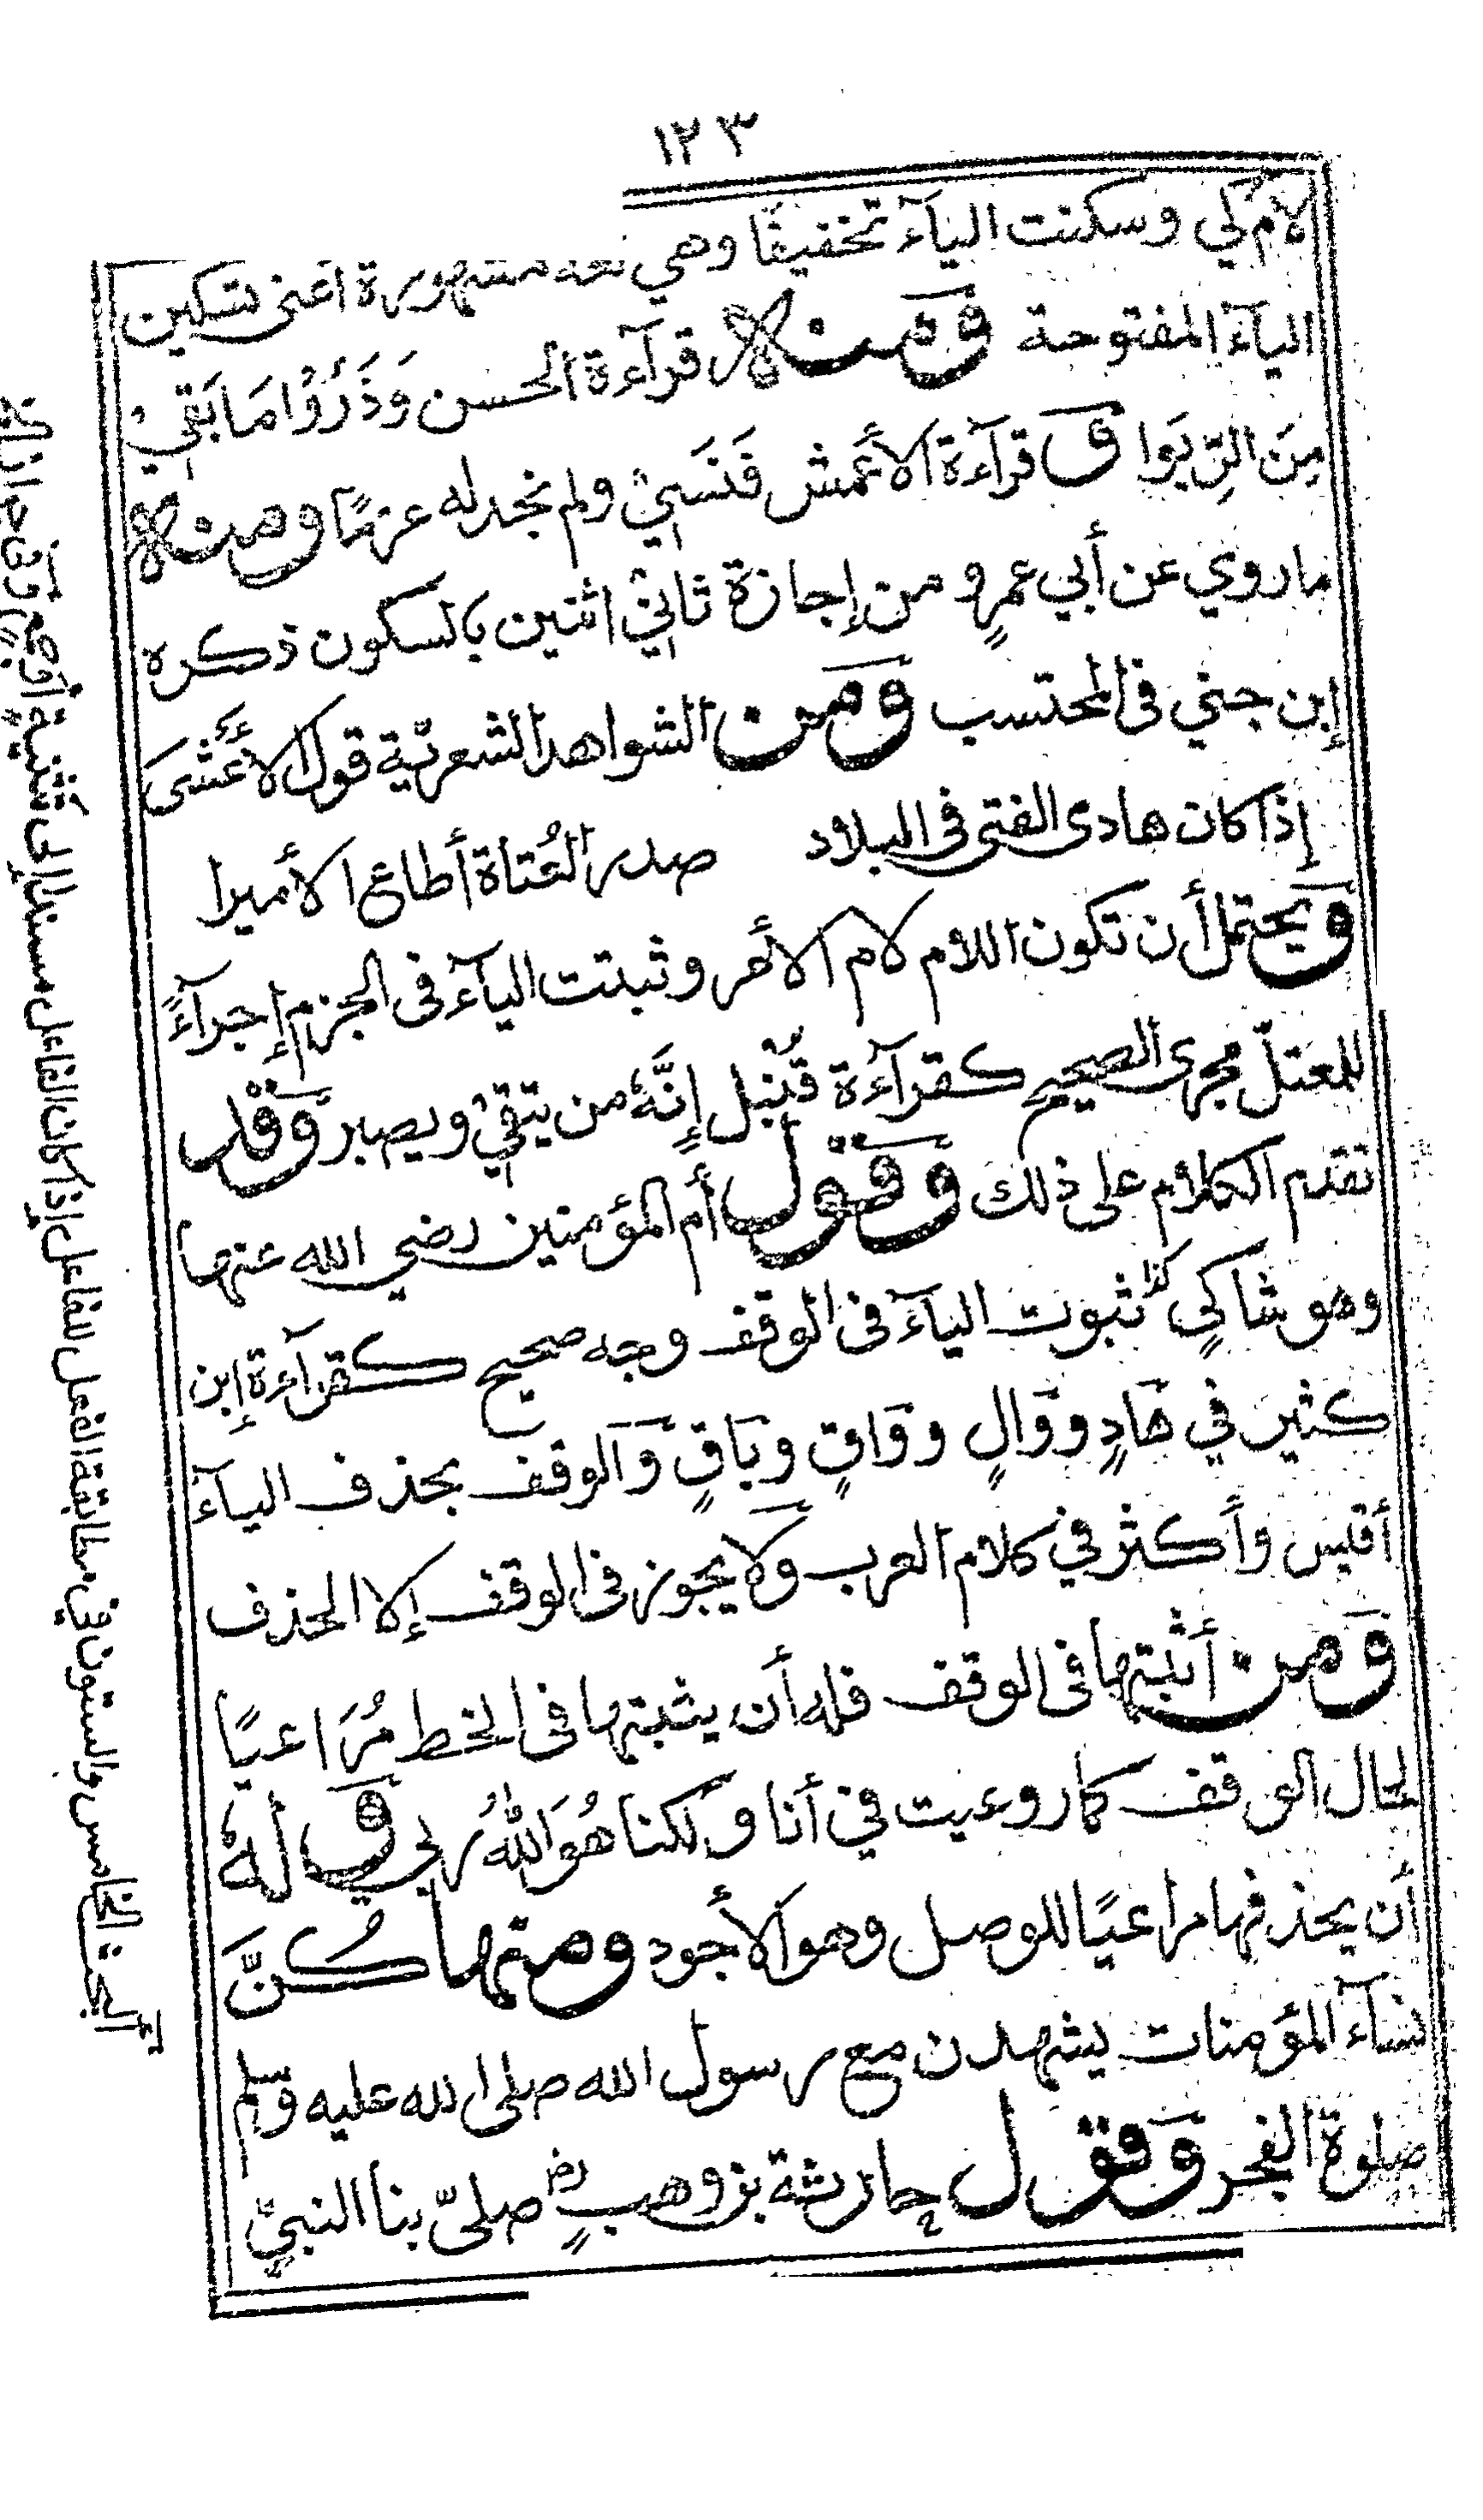 ١٢٣
لام كي وسكنت اليآء تخفيفًا وهي لغة مشهورة أعنى تسكين
اليآء المفتوحة ومنه قرآءة الحسن وَذَرُوْا مَا بَقِيْ
مِنَ الرِّبَوا و قرآءة الأعمش فَنَسَيْ ولم نجد له عزمًا ومنه
ما روي عن أبي عمرٍو من إجازة ثانيْ اثنين بالسكون ذكره
إبن جني فى المحتسب ومن الشواهد الشعريّة قول الأعشى
إذا كان هادى الفتى فى البلاد صدر القناة أطاع الأميرا
ويحتمل أن تكون اللام لام الأمر وثبتت اليآء فى الجزم إجرآءً
للمعتلّ مجرى الصحيح كقرآءة قُنْبُل إنَّهُ من يتقيْ ويصبر وقد
تقدم الكلام على ذلك وقول أم المؤمنين رضي الله عنها
وهو شاكيٍ كذا ثبوت اليآء فى الوقف وجه صحيح كقرآءة إبن
كثير في هَادٍ و وَالٍ و وَاقٍ و بَاقٍ و الوقف بحذف اليآء
أقيس وأكثر في كلام العرب ولا يجوز فى الوقف إلا الحذف
ومن أثبتها فى الوقف فله أن يثبتها فى الخط مُرَاعيًا
لحال الوقف كما روعيت في أنا ولكنا هُوَ اللّٰهُ ربي و لهُ
أن يحذفها مراعيًا للوصل وهو الأجود ومنها كُنَّ
نسآء المؤمنات يشهدن مع رسول الله صلى الله عليه وسلم
صلوة الفجر وقول حارثة بن وهبٍ رض صلىّ بنا النبيّ
البحث الخامس والستون في مطابقة الفعل للفاعل إذا كان الفاعل مسندا إلى تثنية أو جمع